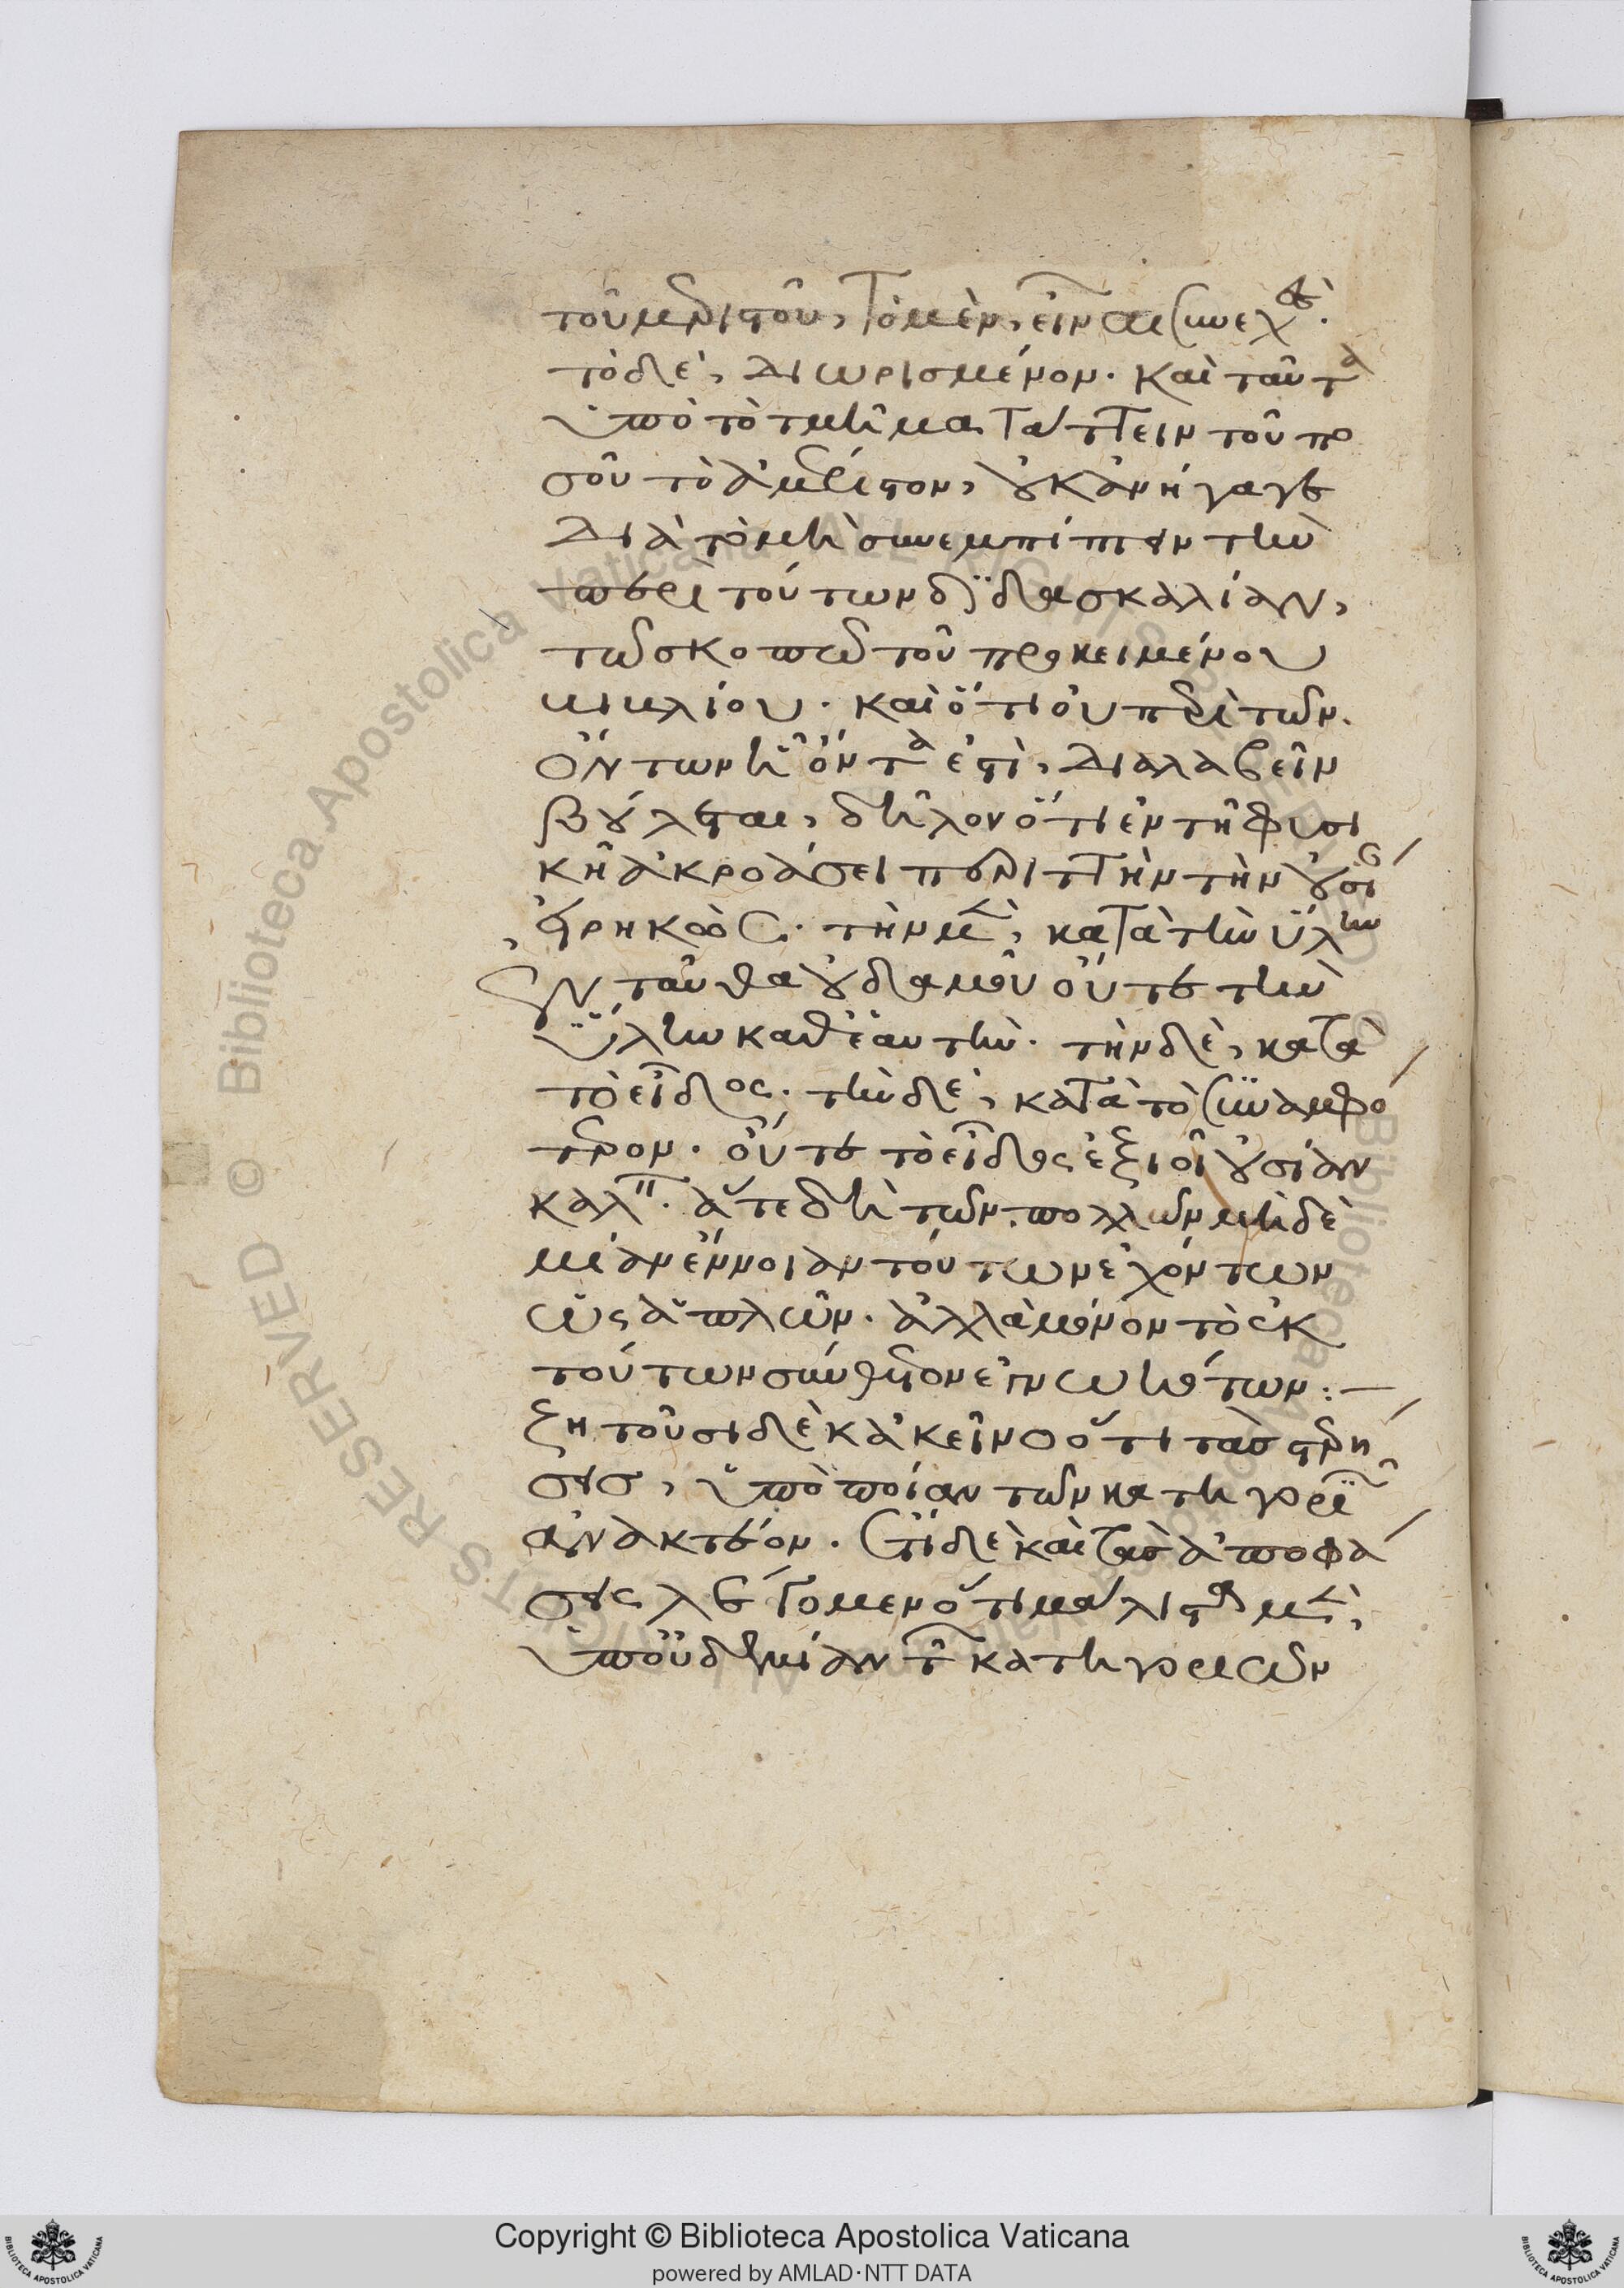 τοῦ μεριστοῦ, τὸ μὲν, εἶναι συνεχὲς.
τὸ δὲ, διωρισμένον. καὶ ταῦτα
ὑπὸ τὸ τμῆμα τάττειν τοῦ πο
σοῦ τὸ ἀμέριστον, οὐκ ἀνήγαγε
διὰ τὸ μὴ συνεμπίπτειν τὴν
περὶ τούτων διδασκαλίαν,
τῶ σκοπῶ τοῦ προκειμένου
βιβλίου. καὶ ὅτι οὐ περὶ τῶν
ὄντων ἧ ὄντα ἐστὶ, διαλαβεῖν
βούλεται, δῆλον ὅτι ἐν τῆ φυσι
κῆ ἀκροάσει περιττὴν τὴν οὐσί
εἰρηκὼς. τὴν μὲν, κατὰ τὴν ὕλην
ἐνταῦθα οὐδαμοῦ οὔτε τὴν
ὕλην καθ ἑαυτὴν. τὴν δὲ, κατὰ
τὸ εἶδος. τὴν δὲ, κατὰ τὸ συναμφό
τερον. οὔτε τὸ εἶδος ἐξιοῖ οὐσίαν
καλ. ἅτε δὴ τῶν πολλῶν μηδὲ
μίαν ἔννοιαν τούτων ἐχόντων
ὡς ἁπλῶν. ἀλλὰ μόνον τὸ ἐκ
τούτων σύνθετον εἰνωηότων:—
ζητοῦσι δὲ κἀκεῖνο ὅτι τὰς στερή
σεις, ὑπὸ ποίαν τῶν κατηγορι
ἀνακτέον. ἔτι δὲ καὶ τὰς ἀποφά
σεις λέγομεν ὅτι μάλιστα μὲν,
ὑπ οὐδεμίαν τῶν κατηγοριῶν
Copyright © Biblioteca Apostolica Vaticana
powered by AMLAD·NTT DATA